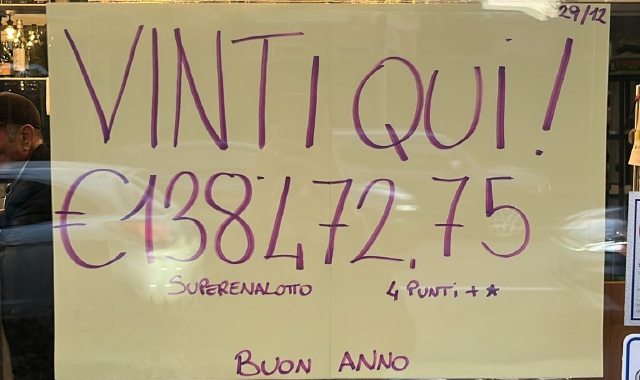 29/12
VINTI QUI!
€138'472,75
SUPERENALOTTO 4 PUNTI + ★
BUON ANNO